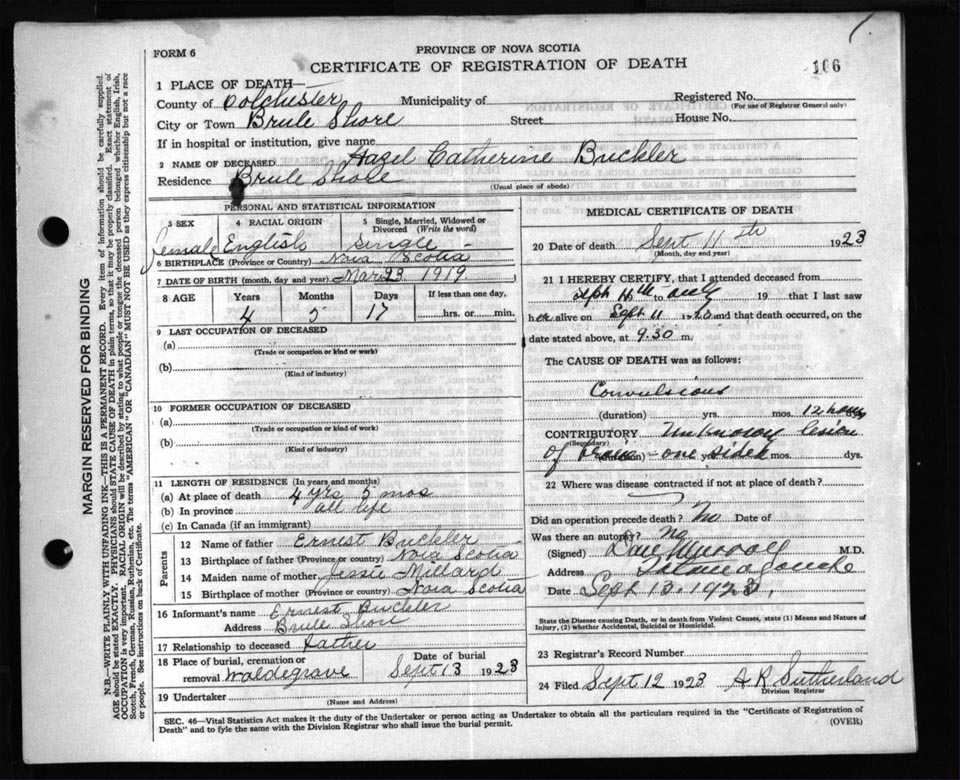 FORM 6
PROVINCE OF NOVA SCOTIA
CERTIFICATE OF REGISTRATION OF DEATH
106
1 PLACE OF DEATH—
County of Colchester Municipality of
Registered No.
(For use of Registrar General only)
City or Town Brule Shore Street House No.
If in hospital or institution, give name
2 NAME OF DECEASED Hazel Catherine Buckler
Residence Brule Shore
(Usual place of abode)
PERSONAL AND STATISTICAL INFORMATION
3 SEX
4 RACIAL ORIGIN
5 Single, Married, Widowed or Divorced (Write the word)
Female English Single
6 BIRTHPLACE (Province or Country) Nova Scotia
7 DATE OF BIRTH (month, day and year) Mar 23 1919
8 AGE Years Months Days If less than one day,
4 5 17 hrs. or min.
9 LAST OCCUPATION OF DECEASED
(a)
(Trade or occupation or kind or work)
(b)
(Kind of industry)
10 FORMER OCCUPATION OF DECEASED
(a)
(Trade or occupation or kind of work)
(b)
(Kind of industry)
11 LENGTH OF RESIDENCE (In years and months)
(a) At place of death 4 yrs 5 mos
(b) In province all life
(c) In Canada (if an immigrant)
Parents
12 Name of father Ernest Buckler
13 Birthplace of father (Province or country) Nova Scotia
14 Maiden name of mother Jessie Millard
15 Birthplace of mother (Province or country) Nova Scotia
16 Informant's name Ernest Buckler
Address Brule Shore
17 Relationship to deceased Father
18 Place of burial, cremation or removal Waldegrave
Date of burial
Sept 13 1923
19 Undertaker
(Name and Address)
MEDICAL CERTIFICATE OF DEATH
20 Date of death Sept 11th 1923
(Month, day and year)
21 I HEREBY CERTIFY, that I attended deceased from
Sept 11th to only 19 that I last saw
her alive on Sept 11 1923 and that death occurred, on
date stated above, at 9.30 m.
The CAUSE OF DEATH was as follows:
Convulsions
(duration) yrs. mos. 12 hours
CONTRIBUTORY Unknown lesion
(Secondary)
of Brain - one sided
(duration) yrs. mos. dys.
22 Where was disease contracted if not at place of death?
Did an operation precede death? No Date of
Was there an autopsy? No
(Signed) M.D.
Address Tatamagouche
Date Sept 13. 1923.
State the Disease causing Death, or in death from Violent Causes, state (1) Means and Nature of Injury, (2) whether Accidental, Suicidal or Homicidal.
23 Registrar's Record Number
24 Filed Sept 12 1923 A R Sutherland
Division Registrar
SEC. 46—Vital Statistics Act makes it the duty of the Undertaker or person acting as Undertaker to obtain all the particulars required in the "Certificate of Registration of
Death" and to fyle the same with the Division Registrar who shall issue the burial permit.
(OVER)
MARGIN RESERVED FOR BINDING
N.B.—WRITE PLAINLY WITH UNFADING INK—THIS IS A PERMANENT RECORD. Every item of information should be carefully supplied.
AGE should be stated EXACTLY. PHYSICIANS should STATE CAUSE OF DEATH in plain terms, so that it may be properly classified. Exact statement of
OCCUPATION is very important. RACIAL ORIGIN will be described by stating to what people or tongue the deceased person belonged whether English, Irish,
Scotch, French, German, Russian, Ruthenian, etc. The terms "AMERICAN" OR "CANADIAN" MUST NOT BE USED as they express citizenship but not a race
or people. See instructions on back of Certificate.